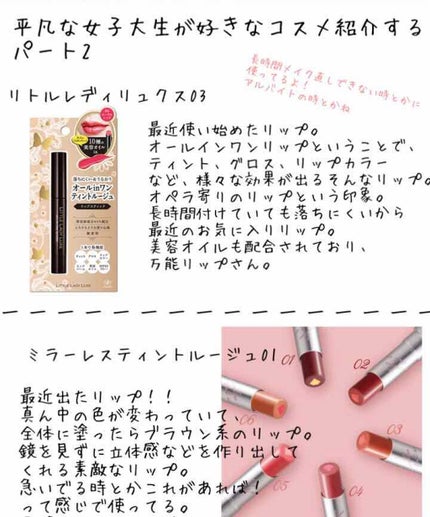 平凡な女子大生が好きなコスメ紹介する
パート2
長時間メイク直しできない時とかに
使ってるよ!
アルバイトの時とかね
リトルレディリュクス03
最近使い始めたリップ。
オールインワンリップということで、
ティント、グロス、リップカラー
など、様々な効果が出るそんなリップ。
オペラ寄りのリップという印象。
長時間付けていても落ちにくいから
最近のお気に入りリップ。
美容オイルも配合されており、
万能リップさん。
10種の
美容オイル
落ちにくい&うるおう
オールinワン
ティントルージュ
LITTLE LADY LUXE
ミラーレスティントルージュ01
最近出たリップ!!
真ん中の色が変わっていて、
全体に塗ったらブラウン系のリップ。
鏡を見ずに立体感などを作り出して
くれる素敵なリップ。
急いでる時とかこれがあれば!
って感じで使ってる。
01
02
03
04
05
06